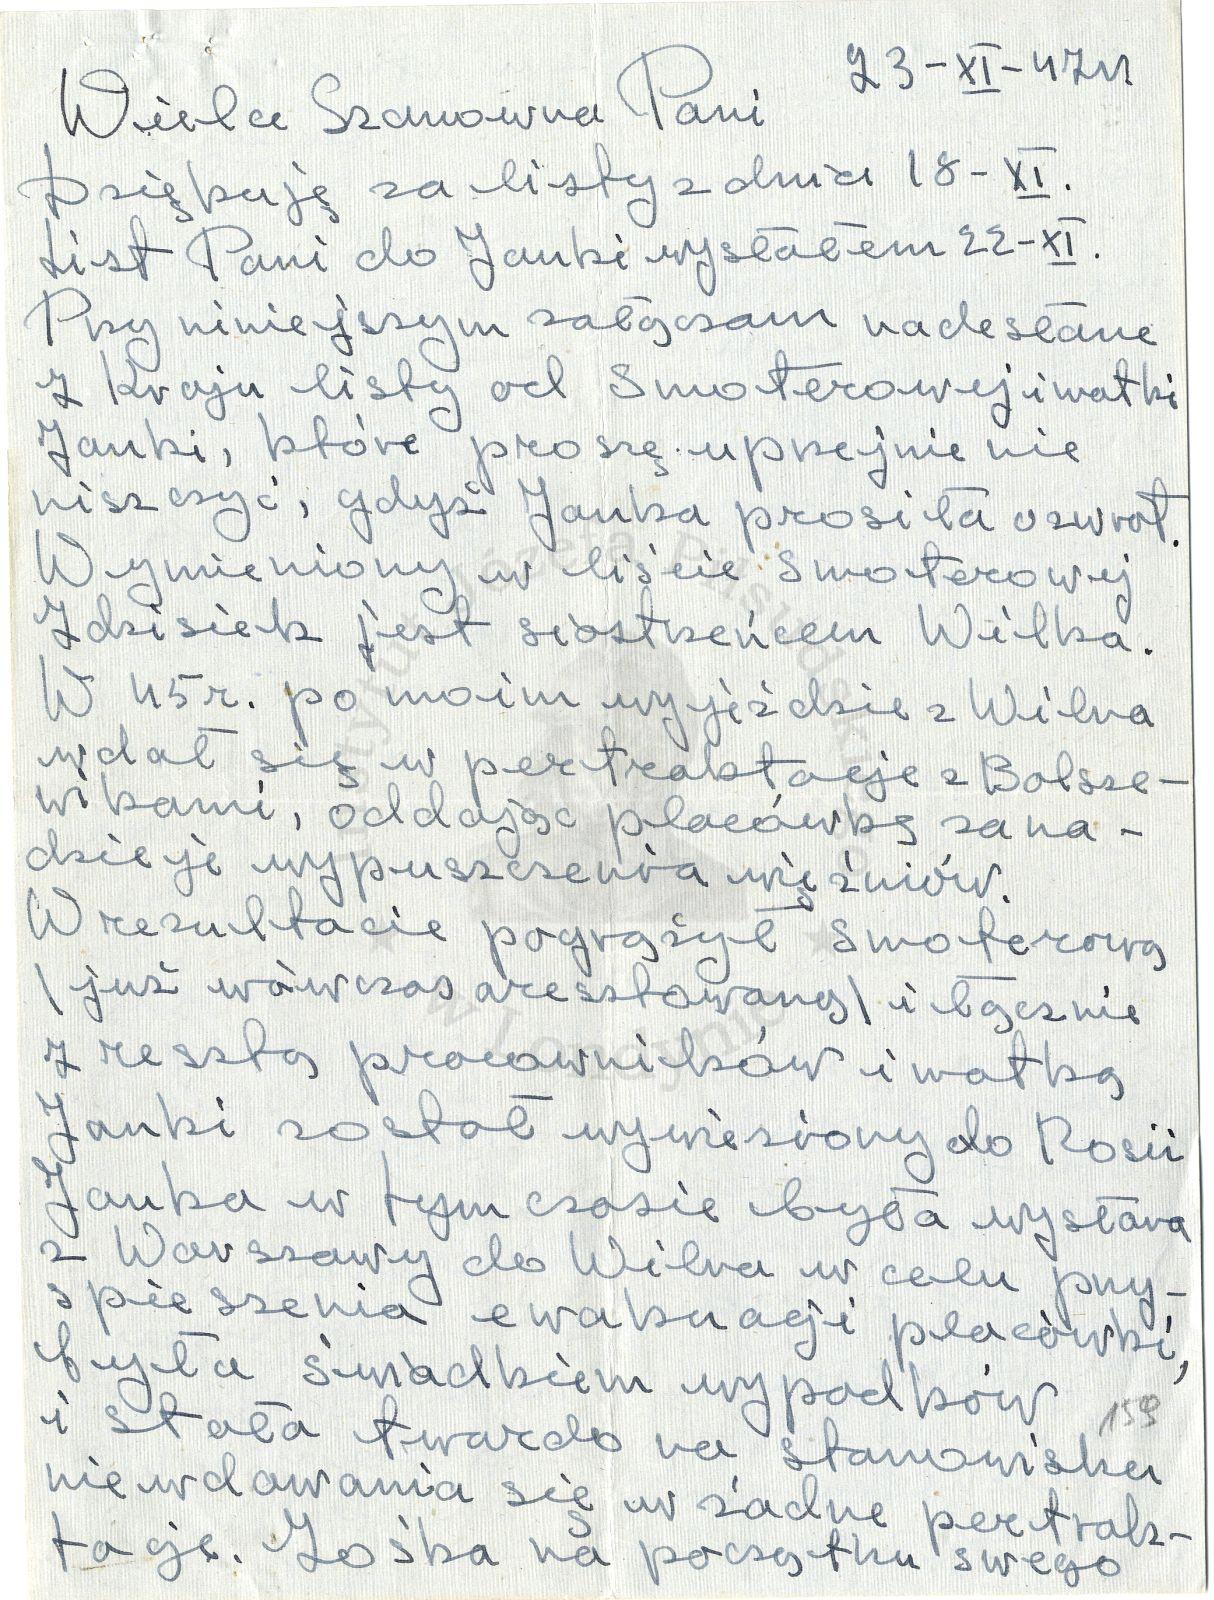 23-XI-47r
Wielce Szanowna Pani
Dziękuję za listy z dnia 18-XI.
List Pani do Janki wysłałem 22-XI.
Przy niniejszym załączam nadesłane
z Kraju listy od Smoterowej i matki
Janki, które proszę uprzejmie nie
niszczyć, gdyż Janka prosiła o zwrot.
Wymieniony w liście Smoterowej
Zdzisiek jest siostrzeńcem Wilka.
W 45r. po moim wyjeździe z Wilna
wdał się w pertraktacje z Bolsze-
wikami, oddając placówkę za na-
dzieję wypuszczenia więźniów.
W rezultacie pogrążył Smoterową
/już wówczas aresztowaną/ i łącznie
z resztą pracowników i matką
Janki został wywieziony do Rosii
Janka w tym czasie była wysłana
z Warszawy do Wilna w celu przy-
spieszenia ewakuacji placówki,
była świadkiem wypadków
i stała twardo na stanowisku
niewdawania się w żadne pertrak-
tacje. Zośka na początku swego
159
Instytut Józefa Piłsudskiego
w Londynie